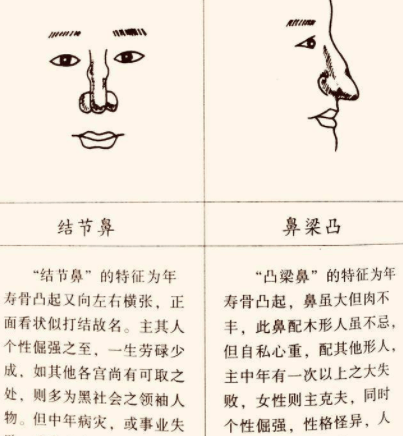 结节鼻
“结节鼻”的特征为年
寿骨凸起又向左右横张，正
面看状似打结故名。主其人
个性倔强之至，一生劳碌少
成，如其他各宫尚有可取之
处，则多为黑社会之领袖人
物。但中年病灾，或事业失
鼻梁凸
“凸梁鼻”的特征为年
寿骨凸起，鼻虽大但肉不
丰，此鼻配木形人虽不忌，
但自私心重，配其他形人，
主中年有一次以上之大失
败，女性则主克夫，同时
个性倔强，性格怪异，人